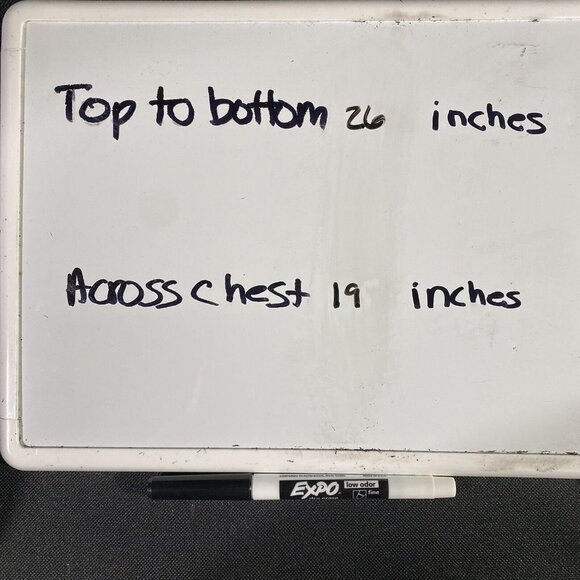 Top to bottom 26 inches
Across chest 19 inches
EXPO low odor
fine